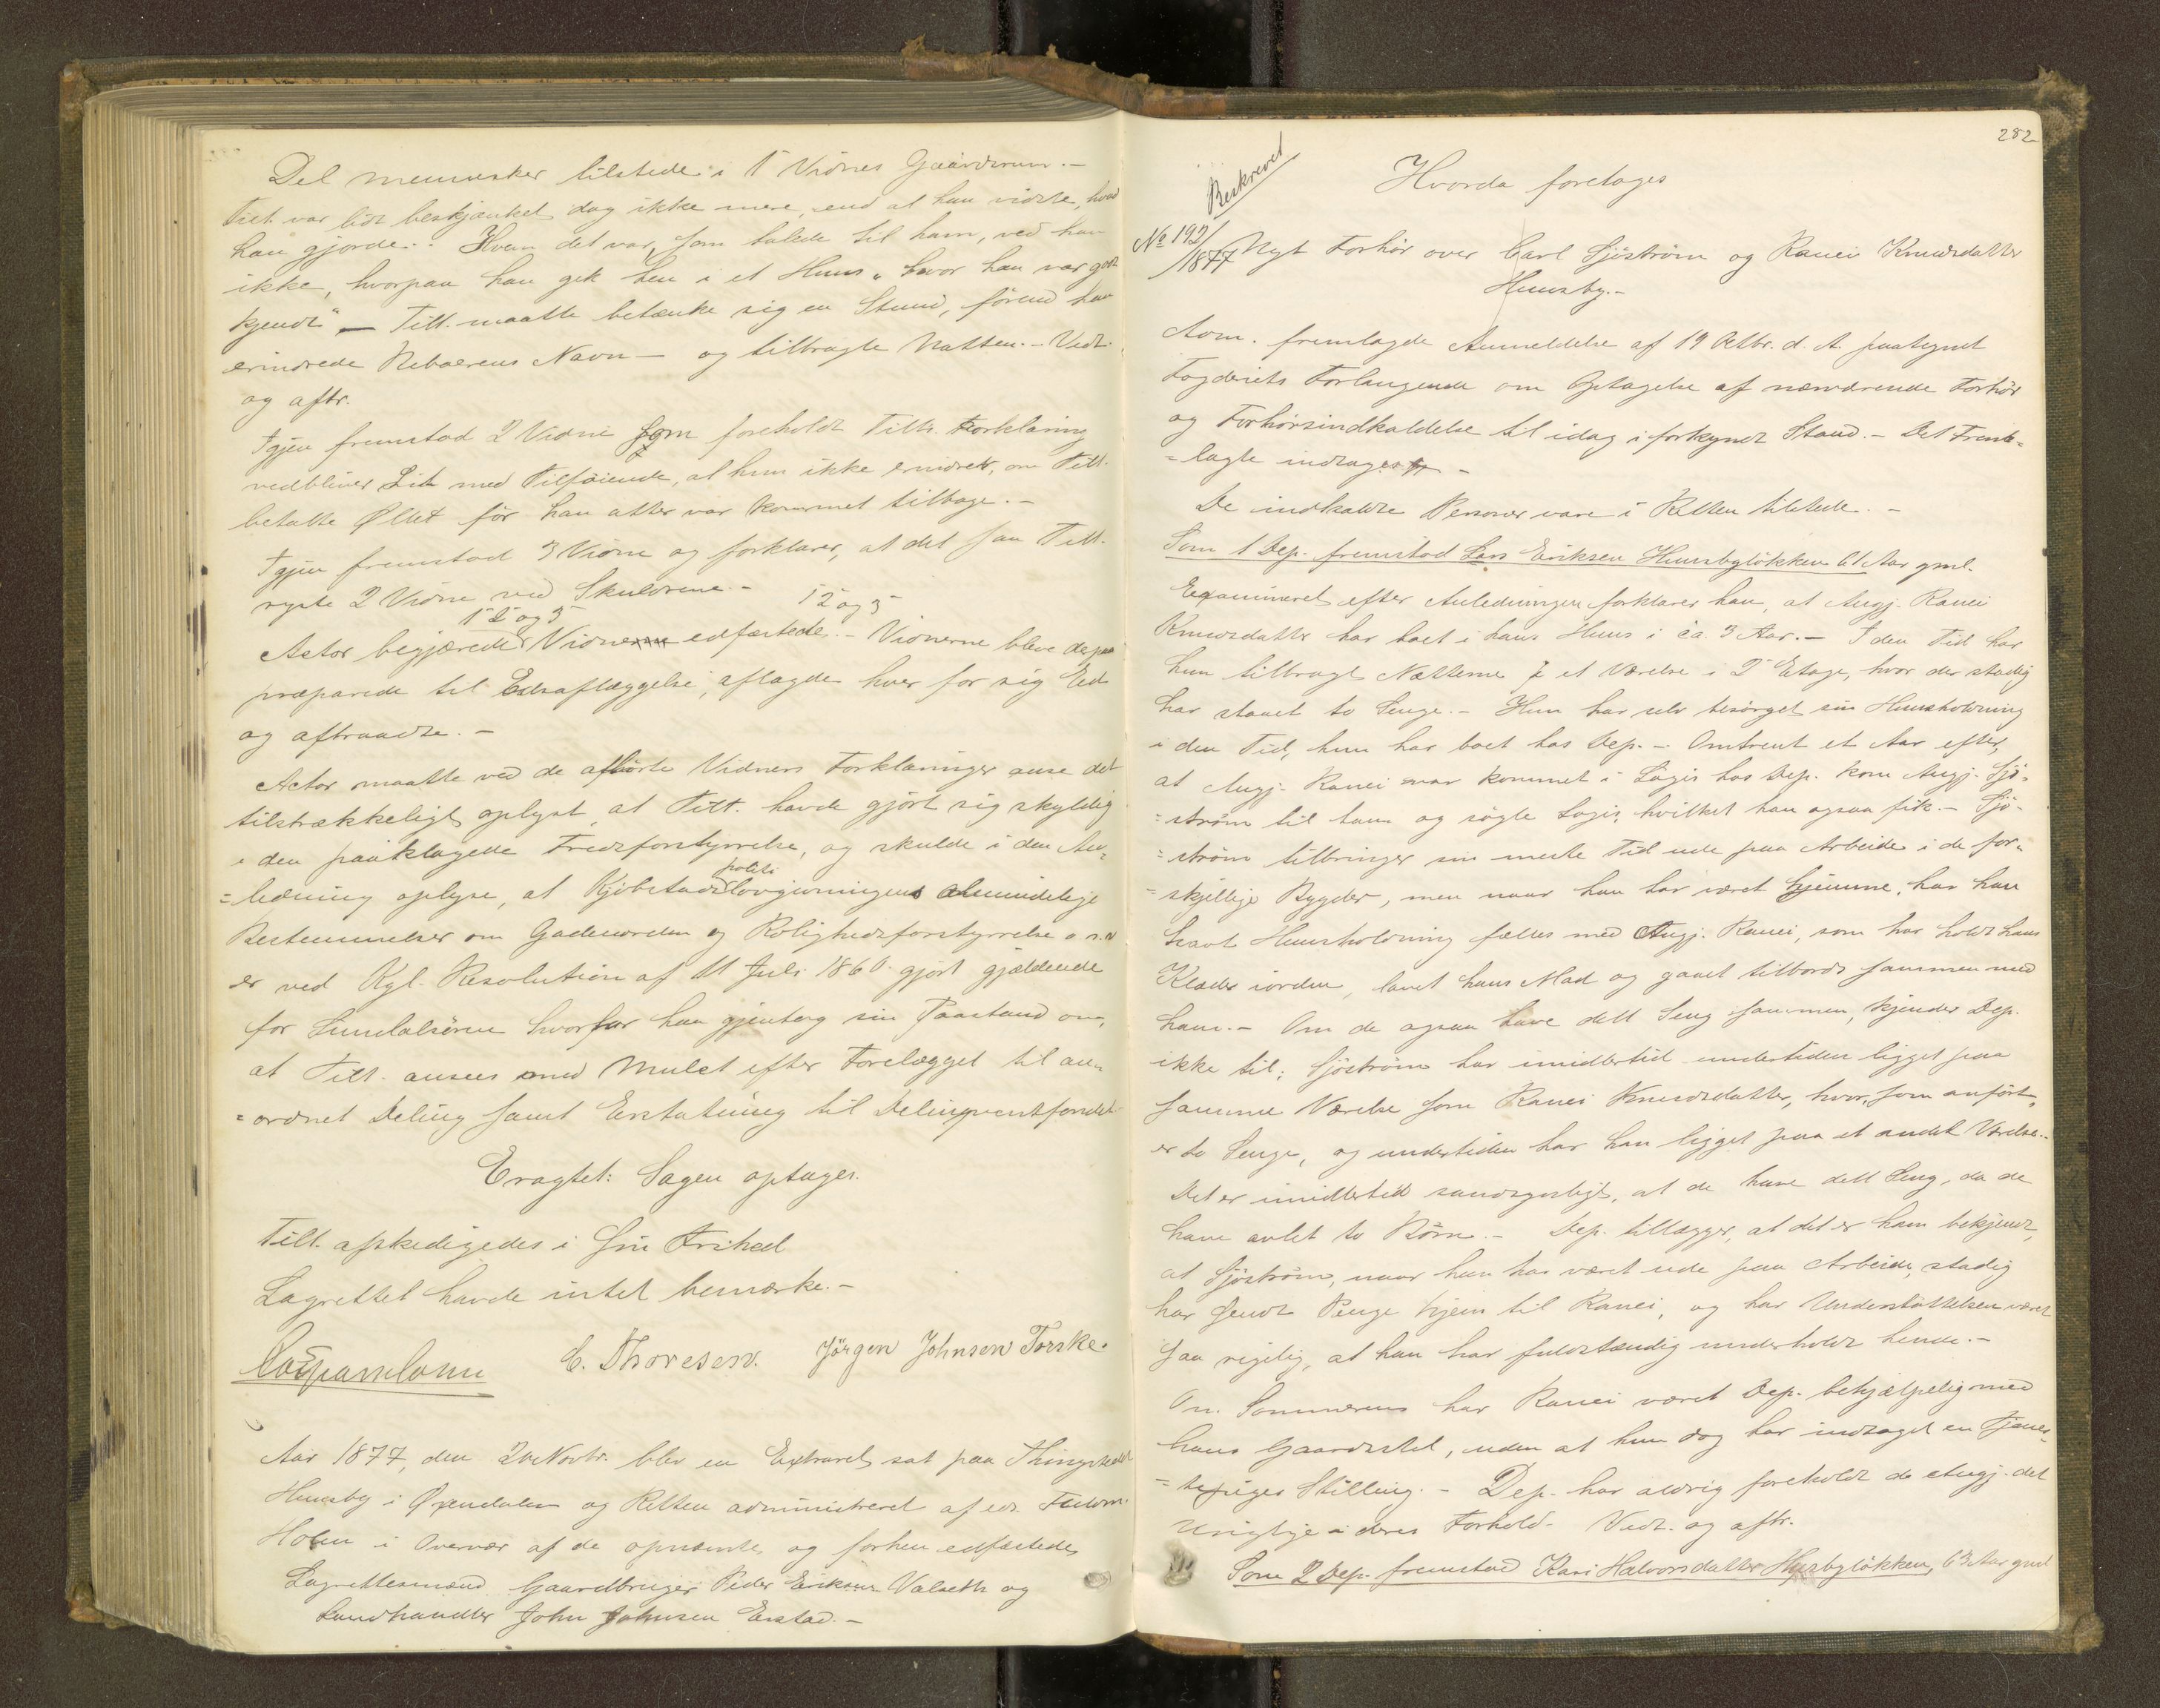 Del mennesker tilstede i 1 Vidnes Gaardsrum.-
Tilt. var lidt beskjænket dog ikke mere, end at han vidste, hvad
han gjorde.. Hvem det var, som talede til ham, ved han
ikke, hvorpaa han gik hen i et Huus "hvor han var godt
kjendt" - Tilt. maatte betænke sig en Stund, förend han
erindrede Beboerens Navn - og tilbragte Natten.- Vedt.
og aftr.
Igjen fremstod 2 Vidne som foreholdt Tilts. Forklaring
vedbliver Sit med Tilföiende, at hun ikke erindrer, om Tilt.
betalte Øllet för han atter var kommet tilbage.-
Igjen fremstod 3 Vidne og forklarer, at det saa Tilt.
ryste 2 Vidne ved Skuldrene.-
Actor begjærede 1 2 og 3 Vidne edfæstede.- Vidnerne 1 2 og 3 bleve derpaa
præparede til Edsaflæggelse, aflagde hver for sig Ed
og aftraadte.-
Actor maatte ved de afhörte Vidners Forklaringer anse det
tilstrækkeligt oplyst, at Tilt. havde gjört sig skyldig
i den paaklagede Fredsforstyrrelse, og skulde i den An-
=ledning oplyse, at Kjöbstadspolitilovgivningens almindelige
Bestemmelser om Gadeuorden og Rolighedsforstyrrelse o.s.v.
er ved Kgl. Resolution af 11 Juli 1860 gjört gjældende
for Sundalsören hvorfor han gjentog sin Paastand om,
at Tilt. ansees med Mulct efter Forelægget til an-
=ordnet Deling samt Erstatning til Delinqventfondet
Eragtet: Sagen optages.
Tilt. afskedigedes i Sin Frihed
Lagrettet havde intet bemærke.-
E. Thoresen. Jörgen Johnsen Torske.
Aar 1877, den 20 Novbr. blev en Extraret sat paa Thingstedet
Huusby i Øxendalen og Retten administreret af eds. Fuldm.
Holm i Overvær af de opnævnte og forhen edfæstede
Lagrettesmænd Gaardbruger Peder Eriksen Valseth og
Landhandler John Johnsen Erstad.-
282
Hvorda foretoges
Beskrevet
No 192/1877 Nyt Forhör over Carl Sjöström og Ranei Knudsdatter
Huusby.-
Adm. fremlagde Anmeldelse af 19 Oktbr. d. A. paategnet
Fogderiets Forlangende om Optagelse af nærværende Forhör
og Forhörsindkaldelse til idag i forkyndt Stand.- Det Frem-
=lagte indtages -
De indkaldte Personer vare i Retten tilstede.-
Som 1 Dep. fremstod Lars Eriksen Huusbylökken 61 Aar gml.
Examineret efter Anledningen forklarer han, at Angj. Ranei
Knudsdatter har boet i hans Huus i ca. 3 Aar.- I den Tid har
hun tilbragt Nætterne i et Værelse i 2 Etage, hvor der stadig
har staaet to Senge.- Hun har selv besörget sin Huusholdning
i den Tid, hun har boet hos Dep.- Omtrent et Aar efter,
at Angj. Ranei var kommet i Logis hos Dep. kom Angj. Sjö-
=ström til ham og sögte Logis, hvilket han ogsaa fik.- Sjö-
=ström tilbringer sin meste Tid ude paa Arbeide i de for-
=skjellige Bygder, men naar han har været hjemme, har han
havt Huusholdning fælles med Angj. Ranei, som har holdt hans
Klæder iorden, lavet hans Mad og gaaet tilbords sammen med
ham.- Om de ogsaa have delt Seng sammen, kjender Dep.
ikke til; Sjöström har imidlertid undertiden ligget paa
samme Værelse som Ranei Knudsdatter, hvor, som anfört,
er to Senge, og undertiden har han ligget paa et andet Værelse.-
Det er imidlertid sandsynligt, at de have delt Seng, da de
have avlet to Börn.- Dep. tillægger, at det er ham bekjendt,
at Sjöström, naar han har været ude paa Arbeide, stadig
har sendt Penge hjem til Ranei, og har Understöttelsen været
saa rigelig, at han har fuldstændig underholdt hende.-
Om Sommeren har Ranei været Dep. behjælpelig med
hans Gaardsstel, uden at hun dog har indtaget en Tjene-
=stepiges Stilling.- Dep. har aldrig foreholdt de Angj. det
Urigtige i deres Forhold- Vedt. og aftr.
Som 2 Dep. fremstod Kari Halvorsdatter Huusbylökken, 63 Aar gml